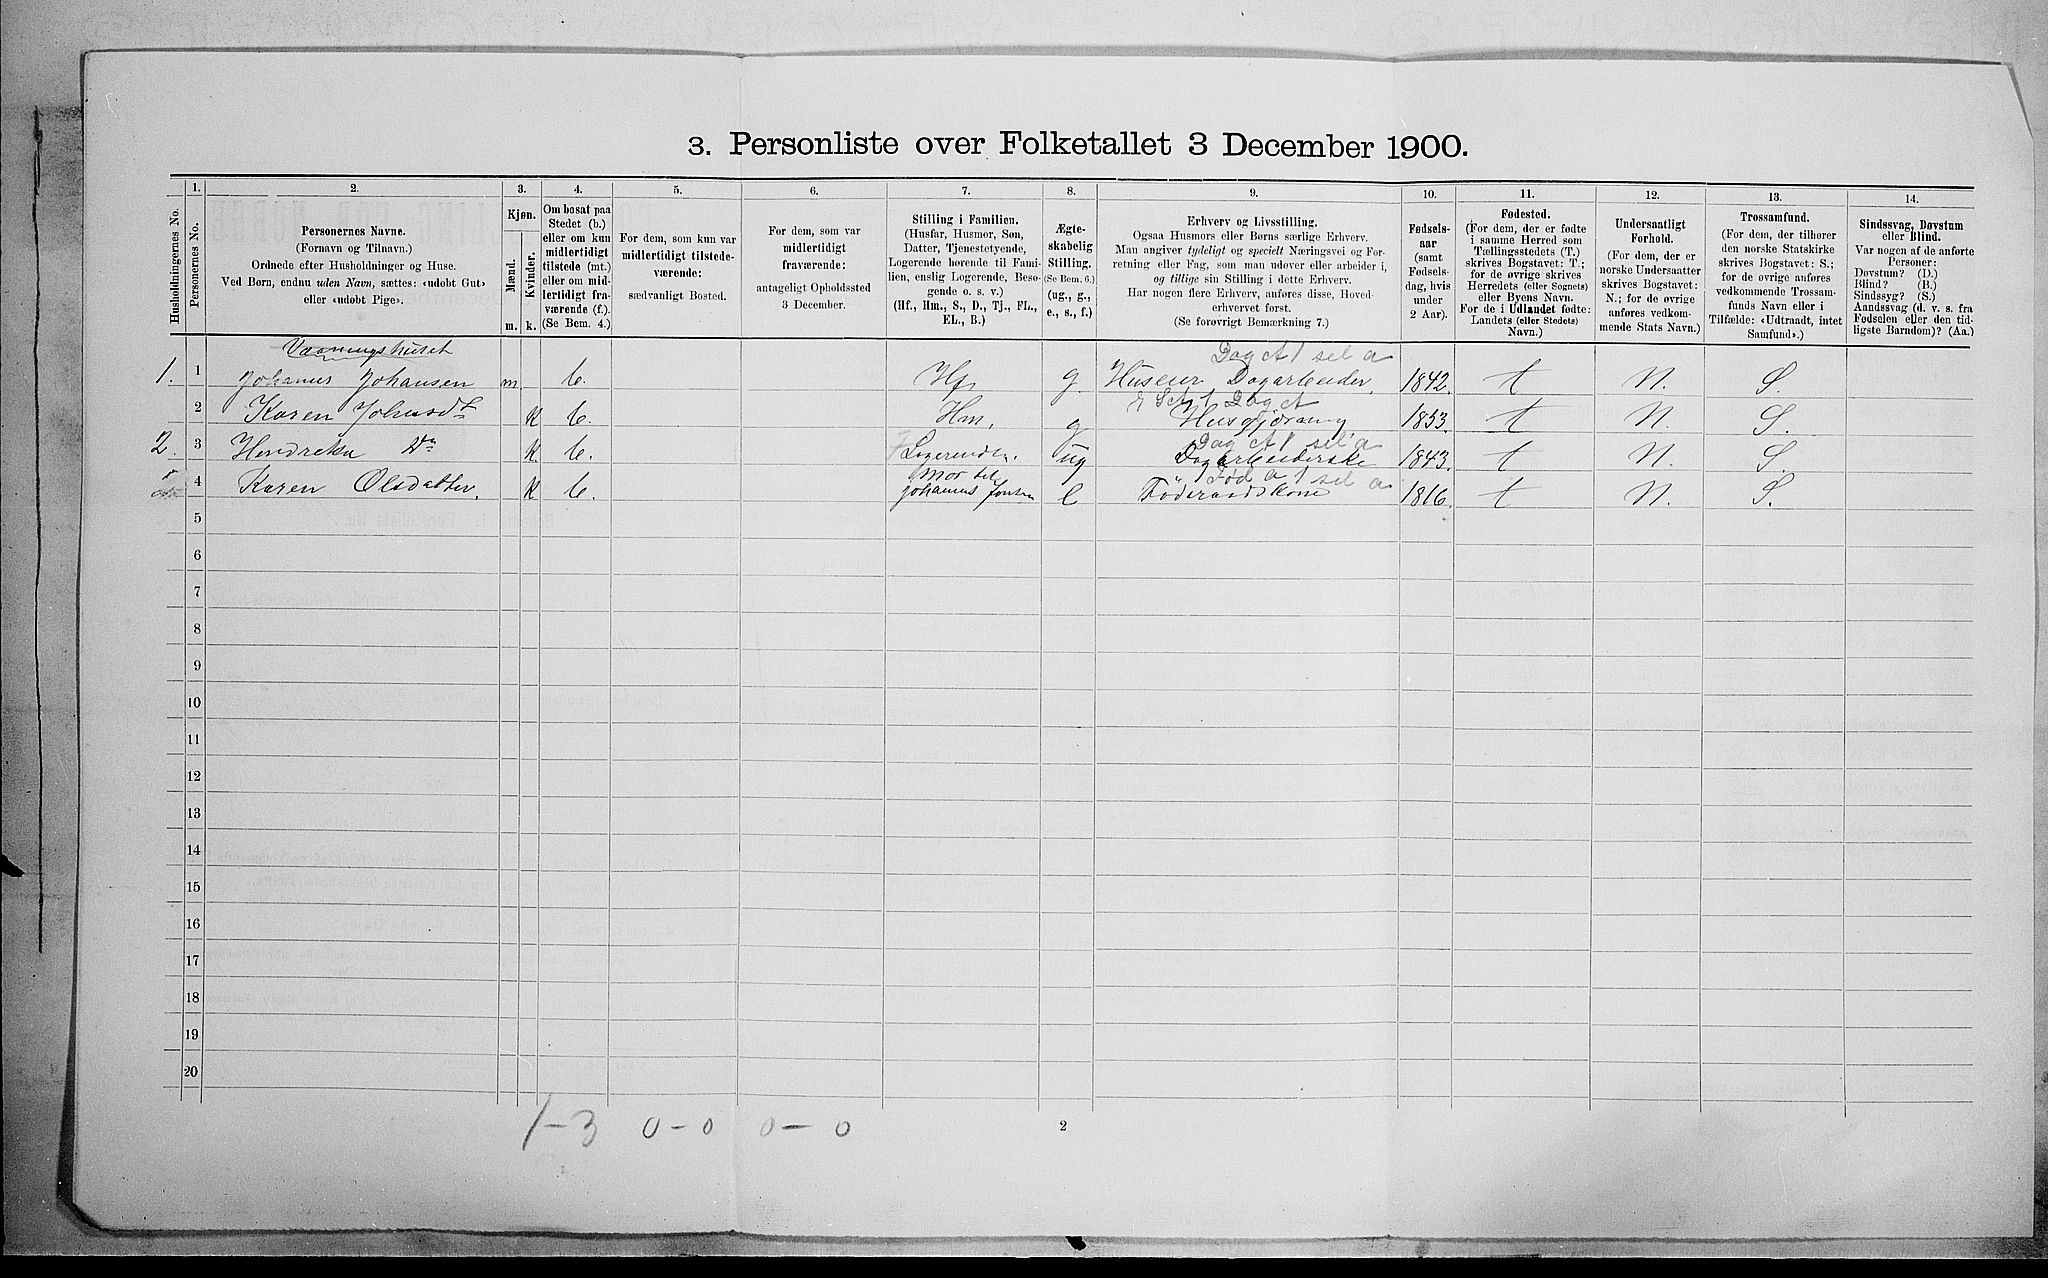 3. Personliste over Folketallet 3 December 1900.
Husholdningernes No.
1.
Personernes No.
2.
Personernes Navne.
(Fornavn og Tilnavn.)
Ordnede efter Husholdninger og Huse.
Ved Børn, endnu uden Navn, sættes: «udøbt Gut»
eller «udøbt Pige».
3.
Kjøn.
Mænd.
Kvinder.
m.
k.
4.
Om bosat paa
Stedet (b.)
eller om kun
midlertidigt
tilstede (mt.)
eller om mid-
lertidigt fra-
værende (f.).
(Se Bem. 4.)
5.
For dem, som kun var
midlertidigt tilstede-
værende:
sædvanligt Bosted.
6.
For dem, som var
midlertidigt
fraværende:
antageligt Opholdssted
3 December.
7.
Stilling i Familien.
(Husfar, Husmor, Søn,
Datter, Tjenestetyende,
Logerende hørende til Fami-
lien, enslig Logerende, Besø-
gende o. s. v.)
(Hf., Hm., S., D., Tj., FL.,
EL., B.)
8.
Ægte-
skabelig
Stilling.
(Se Bem. 6.)
(ug., g.,
e., s., f.)
9.
Erhverv og Livsstilling.
Ogsaa Husmors eller Børns særlige Erhverv.
Man angiver tydeligt og specielt Næringsvei og For-
retning eller Fag, som man udøver eller arbeider i,
og tillige sin Stilling i dette Erhverv.
Har nogen flere Erhverv, anføres disse, Hoved-
erhvervet først.
(Se forøvrigt Bemærkning 7.)
10.
Fødsels-
aar
(samt
Fødsels-
dag, hvis
under
2 Aar).
11.
Fødested.
(For dem, der er fødte
i samme Herred som
Tællingsstedets (T.)
skrives Bogstavet: T.;
for de øvrige skrives
Herredets (eller Sognets)
eller Byens Navn.
For de i Udlandet fødte:
Landets (eller Stedets)
Navn.)
12.
Undersaatligt
Forhold.
(For dem, der er
norske Undersaatter
skrives Bogstavet:
N.; for de øvrige
anføres vedkom-
mende Stats Navn.)
13.
Trossamfund.
(For dem, der tilhører
den norske Statskirke
skrives Bogstavet: S.;
for de øvrige anføres
vedkommende Trossam-
funds Navn eller i
Tilfælde: «Udtraadt, intet
Samfund».)
14.
Sindssvag, Døvstum
eller Blind.
Var nogen af de anførte
Personer:
Døvstum? (D.)
Blind? (B.)
Sindssyg? (S.)
Aandssvag (d. v. s. fra
Fødselen eller den tid-
ligste Barndom)? (Aa.)
Vaaningshuset
1. 1 Johanus Johansen m. b. Hf. g Huseier Dagarbeider. 1842. t N. S.
2 Karen Johnsdt K b. Hm. g Husgjerning 1853. t N. S.
2. 3 Hendreka Do K. b. Logerende. ug Dagarbeiderske 1843. t N. S.
4 Karen Olsdatter. K b. Mor til
Johanus e Føderaadskone 1816. t N. S.
5
6
7
8
9
10
11
12
13
14
15
16
17
18
19
20
1-3 0-0 0-0
2